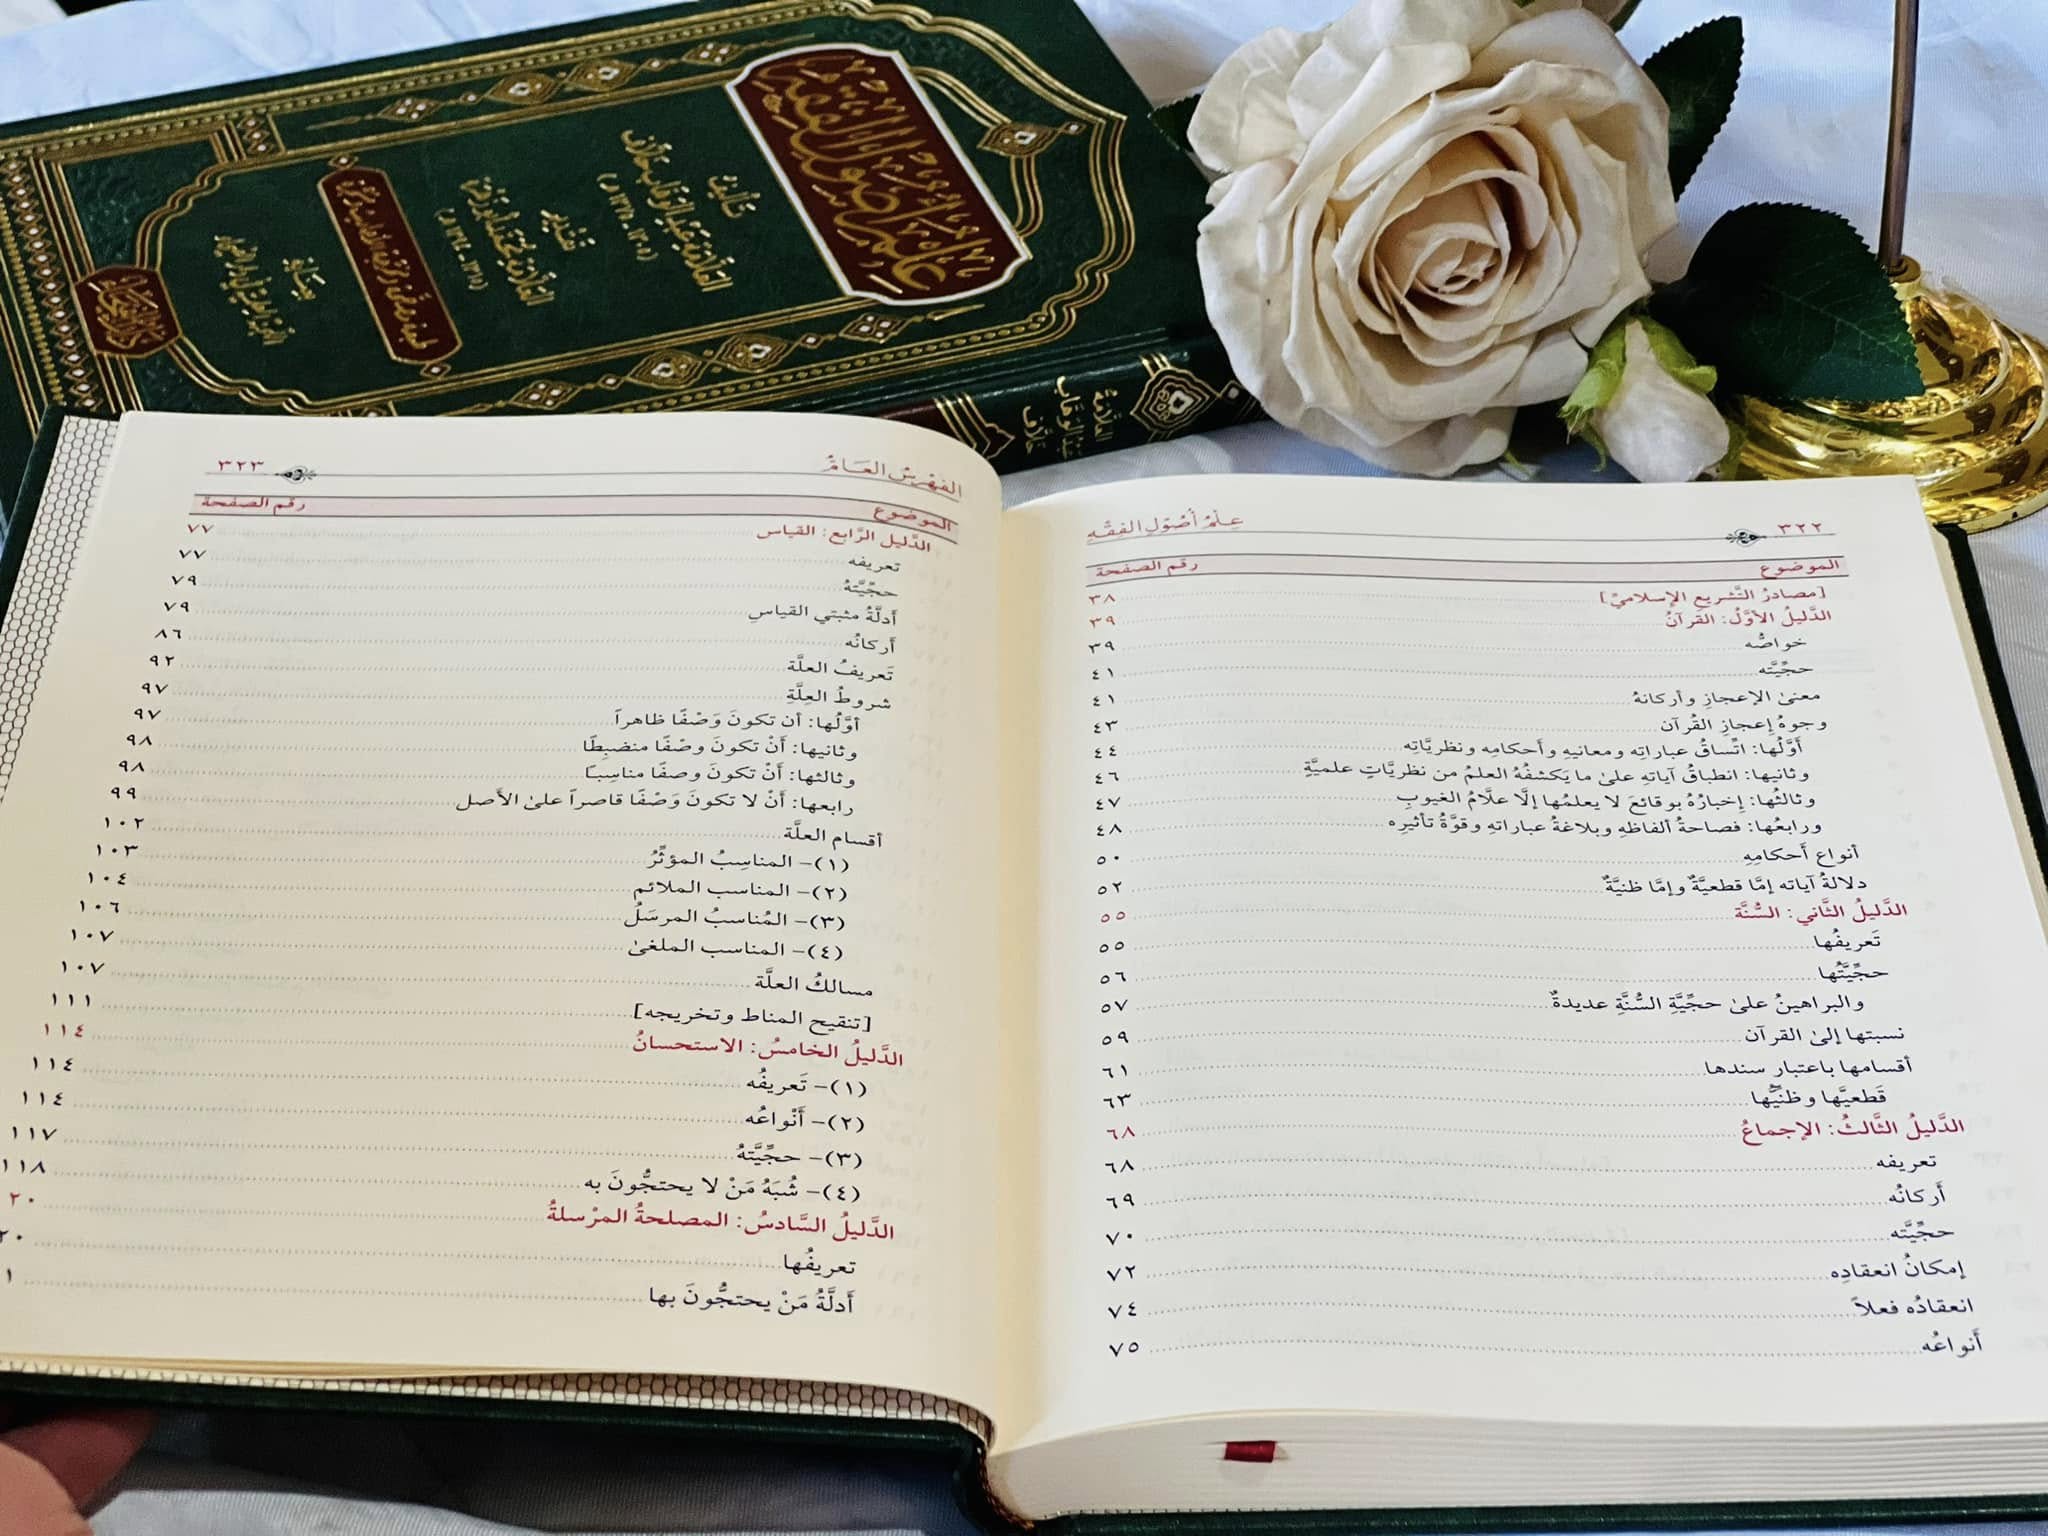 علم أصول الفقه
تأليف
العلامة عبد الوهاب خلاف
(١٣٠٥ - ١٣٧٥ هـ)
تقديم
العلامة محمد أبو زهرة
العلامة
عبد الوهاب
خلاف
٣٢٢
عِلْمُ أُصُولِ الفِقْهِ
الموضوع رقم الصفحة
[مصادرُ التَّشريعِ الإسلاميِّ] ٣٨
الدَّليلُ الأوَّلُ: القرآنُ ٣٩
خواصُّه ٣٩
حجِّيَّته ٤١
معنىٰ الإعجازِ وأركانهُ ٤١
وجوهُ إعجازِ القُرآن ٤٣
أوَّلُها: اتِّساقُ عباراتِه ومعانيهِ وأحكامِه ونظريَّاتِه ٤٤
وثانيها: انطباقُ آياتهِ علىٰ ما يَكشفُهُ العلمُ من نظريَّاتٍ علميَّةٍ ٤٦
وثالثُها: إخبارُهُ بوقائعَ لا يعلمُها إلَّا علَّامُ الغيوبِ ٤٧
ورابعُها: فصاحةُ ألفاظهِ وبلاغةُ عباراتهِ وقوَّةُ تأثيرِه ٤٨
أنواع أَحكامِهِ ٥٠
دلالةُ آياته إمَّا قطعيَّةٌ وإمَّا ظنيَّةٌ ٥٢
الدَّليلُ الثَّاني: السُّنَّة ٥٥
تَعريفُها ٥٥
حجِّيَّتُها ٥٦
والبراهينُ علىٰ حجِّيَّةِ السُّنَّةِ عديدةٌ ٥٧
نسبتها إلىٰ القرآن ٥٩
أقسامها باعتبار سندها ٦١
قَطعيَّها وظنِّيَّها ٦٣
الدَّليلُ الثَّالثُ: الإجماعُ ٦٨
تعريفه ٦٨
أَركانُه ٦٩
حجِّيَّته ٧٠
إمكانُ انعقادِه ٧٢
انعقادُه فعلاً ٧٤
أَنواعُه ٧٥
الفِهْرِسُ العَامُّ
٣٢٣
الموضوع رقم الصفحة
الدَّليل الرَّابع: القياس ٧٧
تعريفه ٧٧
حجِّيَّتهُ ٧٩
أَدلَّةُ مثبتي القياسِ ٧٩
أَركانُه ٨٦
تَعريفُ العلَّة ٩٢
شروطُ العِلَّةِ ٩٧
أوَّلُها: أن تكونَ وَصْفًا ظاهراً ٩٧
وثانيها: أَنْ تكونَ وصْفًا منضبِطًا ٩٨
وثالثها: أَنْ تكونَ وصفًا مناسِبًا ٩٨
رابعها: أَنْ لا تكونَ وَصْفًا قاصراً علىٰ الأَصل ٩٩
أقسام العلَّة ١٠٢
(١)- المناسِبُ المؤثِّرُ ١٠٣
(٢)- المناسب الملائم ١٠٤
(٣)- المُناسبُ المرسَلُ ١٠٦
(٤)- المناسب الملغىٰ ١٠٧
مسالكُ العلَّة ١٠٧
[تنقيح المناط وتخريجه] ١١١
الدَّليلُ الخامسُ: الاستحسانُ ١١٤
(١)- تَعريفُه ١١٤
(٢)- أَنْواعُه ١١٤
(٣)- حجِّيَّتهُ ١١٧
(٤)- شُبَهُ مَنْ لا يحتجُّونَ به ١١٨
الدَّليلُ السَّادسُ: المصلحةُ المرْسلةُ ٢٠
تعريفُها ٢٠
أَدلَّةُ مَنْ يحتجُّونَ بها ١